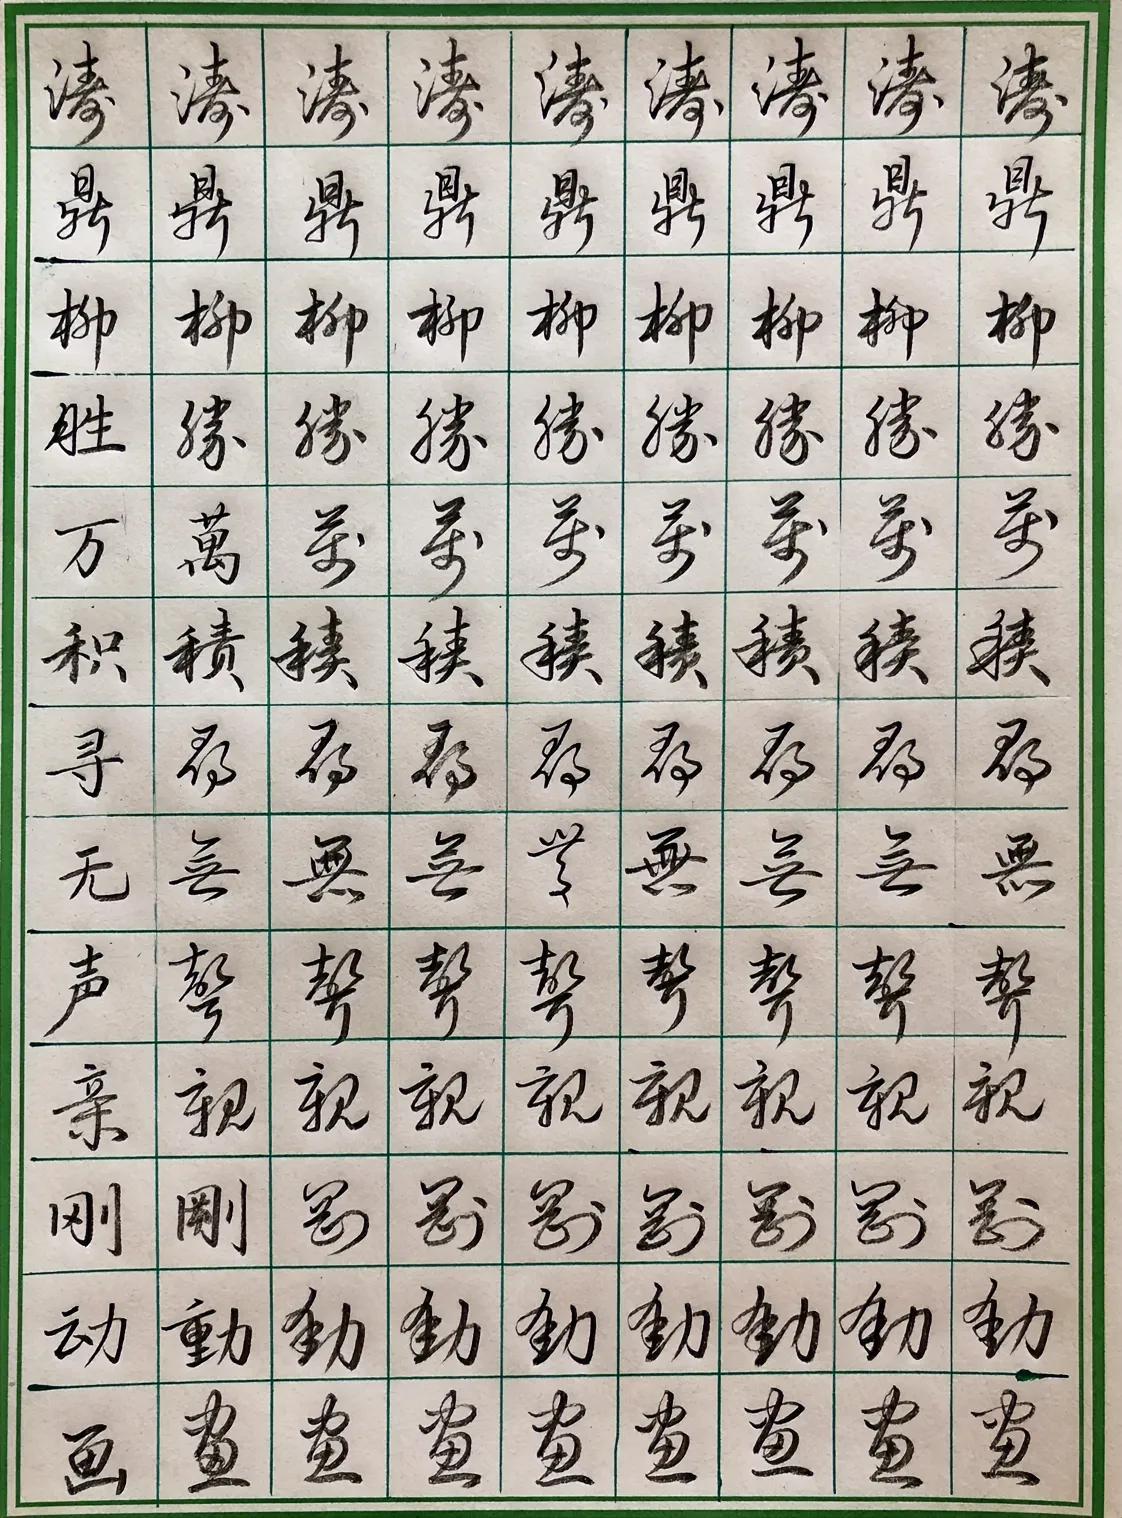 涛涛涛涛涛涛涛涛涛
鼎鼎鼎鼎鼎鼎鼎鼎鼎
柳柳柳柳柳柳柳柳柳
胜勝勝勝勝勝勝勝勝
万萬萬萬萬萬萬萬萬
积積積積積積積積積
寻尋尋尋尋尋尋尋尋
无無無無無無無無無
声聲聲聲聲聲聲聲聲
亲親親親親親親親親
刚剛剛剛剛剛剛剛剛
动動動動動動動動動
画畫畫畫畫畫畫畫畫